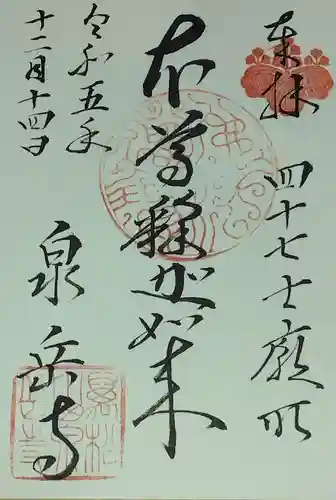 奉拝
四十七士廟所
本尊釋迦如来
令和五年
十二月十四日
泉岳寺